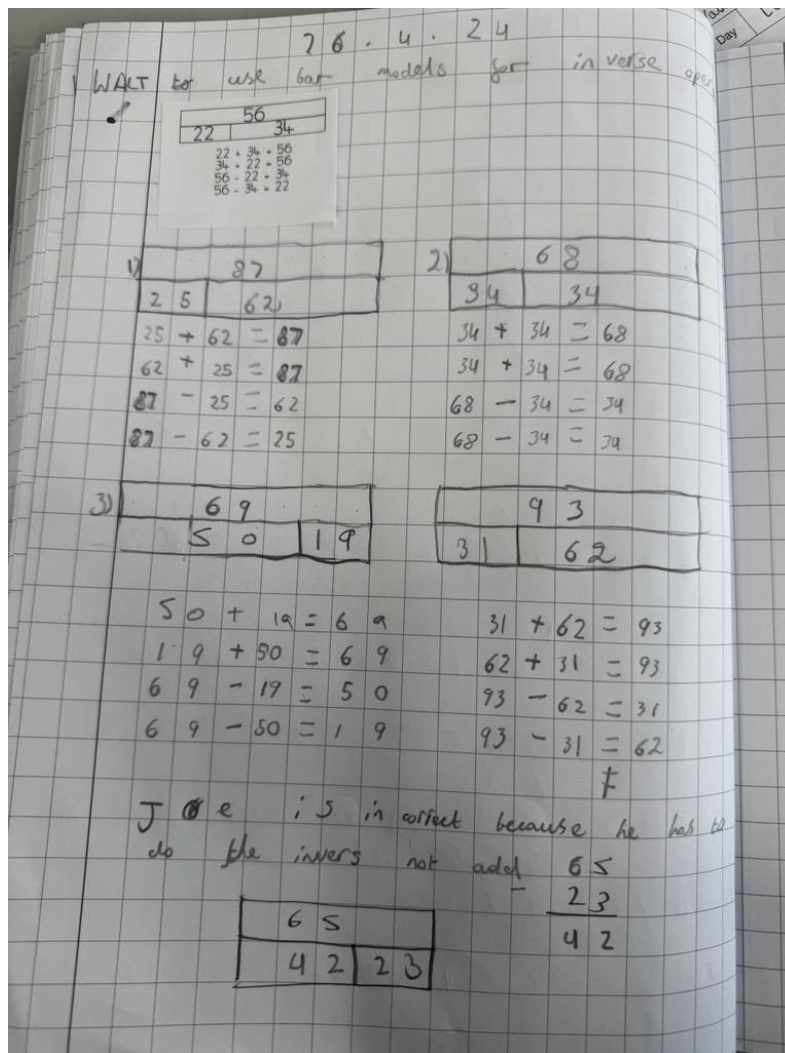 26.4.24
WALT to use bar models for inverse oper
56
22 34
22 + 34 = 56
34 + 22 = 56
56 - 22 = 34
56 - 34 = 22
1)
87
25 62
25 + 62 = 87
62 + 25 = 87
87 - 25 = 62
87 - 62 = 25
2)
68
34 34
34 + 34 = 68
34 + 34 = 68
68 - 34 = 34
68 - 34 = 34
3)
69
50 19
50 + 19 = 69
19 + 50 = 69
69 - 19 = 50
69 - 50 = 19
93
31 62
31 + 62 = 93
62 + 31 = 93
93 - 62 = 31
93 - 31 = 62
Joe is in correct because he has to
do the invers not add
65
- 23
42
65
42 23
Day